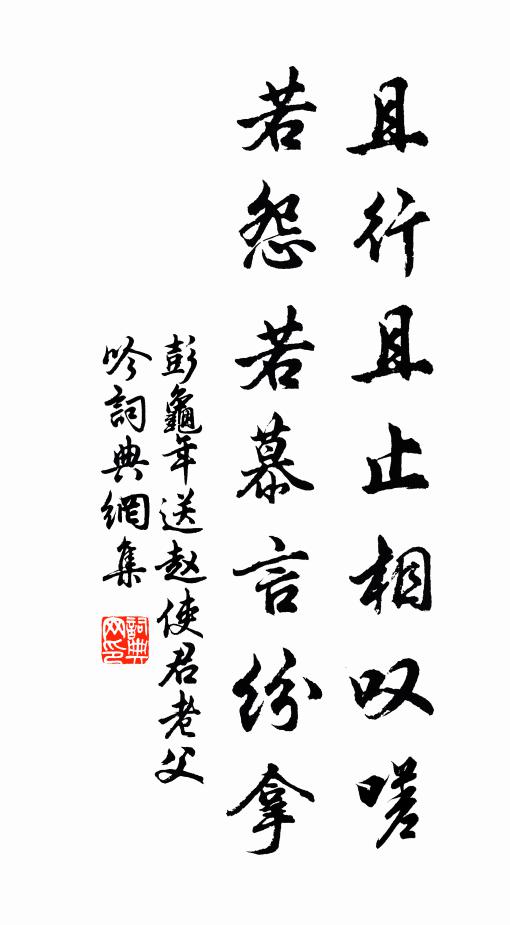 且行且止相叹嗟
若怨若慕言纷拿
彭龜年送赵使君老父
吟詞典網集
詞典
网印